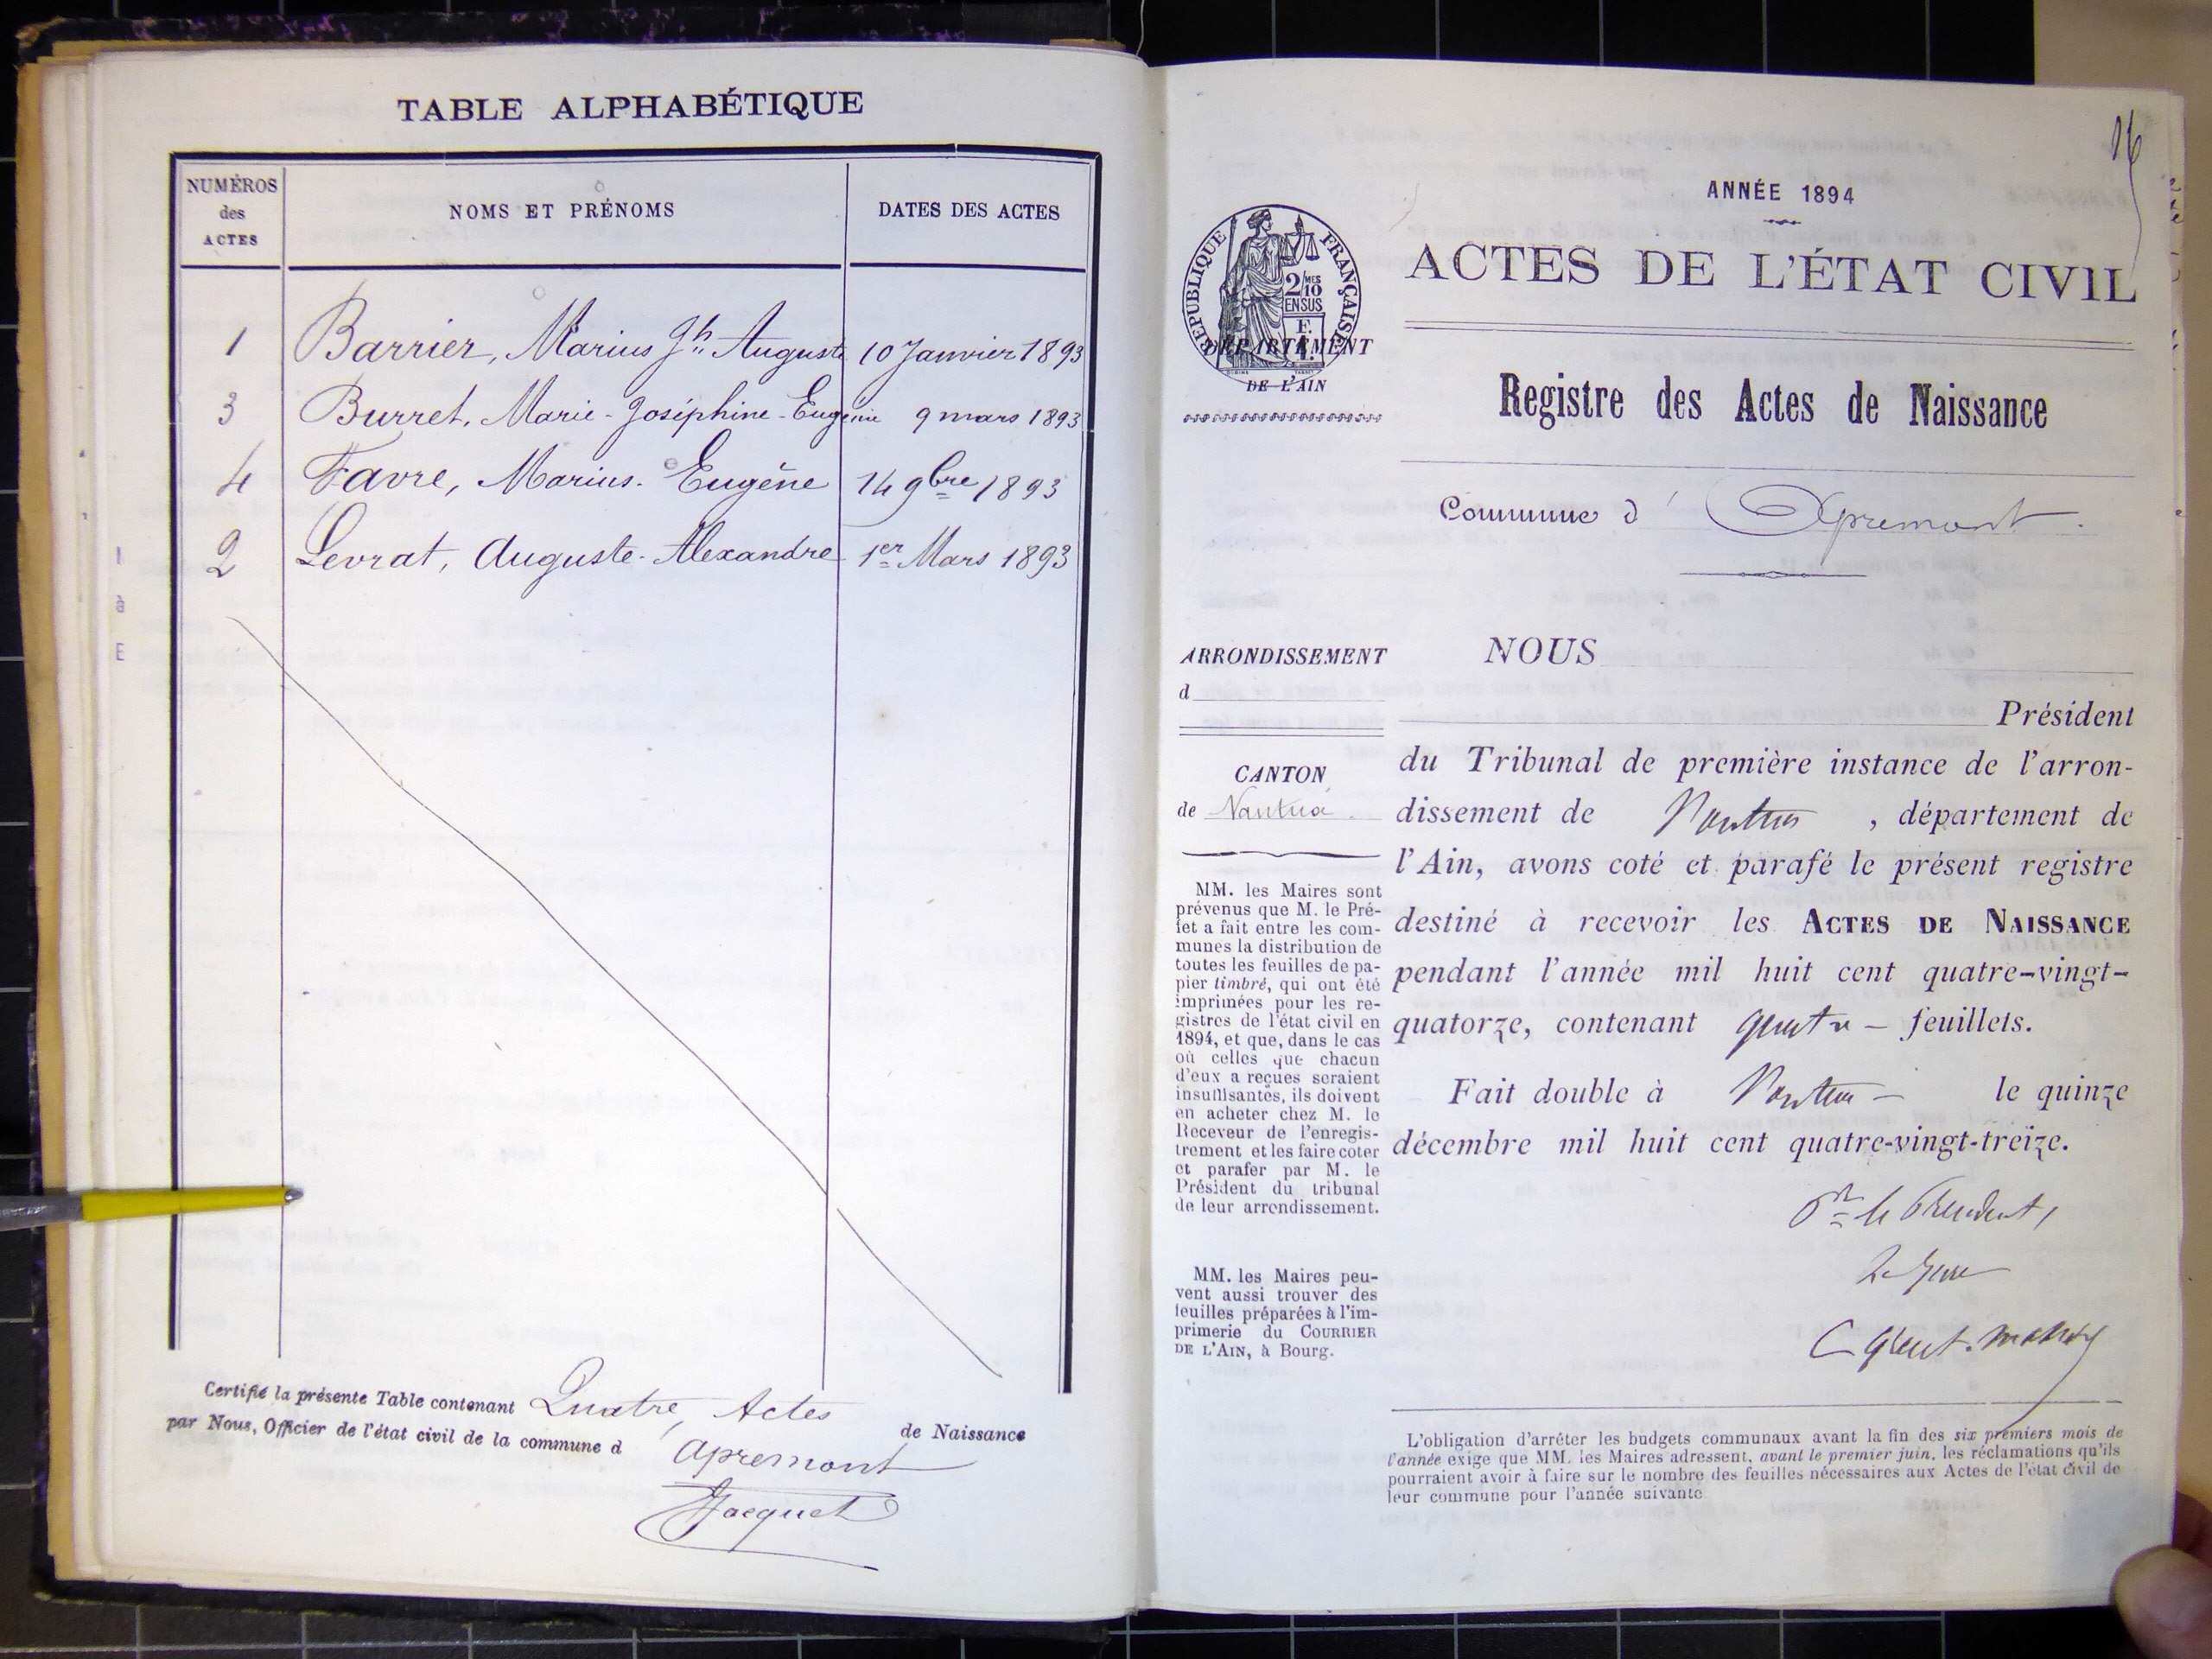 TABLE ALPHABÉTIQUE
NUMÉROS des ACTES
NOMS ET PRÉNOMS
DATES DES ACTES
1 Barrier, Marius Jh. Auguste 10 Janvier 1893
3 Burret, Marie-Joséphine-Eugénie 9 mars 1893
4 Favre, Marius-Eugène 14 9bre 1893
2 Levrat, Auguste-Alexandre 1er Mars 1893
1
à
E
Certifié la présente Table contenant Quatre Actes de Naissance
par Nous, Officier de l'état civil de la commune d Apremont
Jacquet
16
ANNÉE 1894
ACTES DE L'ÉTAT CIVIL
RÉPUBLIQUE FRANÇAISE
2/10MES
EN SUS
DÉPARTEMENT
DE L'AIN
Registre des Actes de Naissance
Commune d' Apremont.
ARRONDISSEMENT
d
CANTON
de Nantua
MM. les Maires sont
prévenus que M. le Pré-
fet a fait entre les com-
munes la distribution de
toutes les feuilles de pa-
pier timbré, qui ont été
imprimées pour les re-
gistres de l'état civil en
1894, et que, dans le cas
où celles que chacun
d'eux a reçues seraient
insuffisantes, ils doivent
en acheter chez M. le
Receveur de l'enregis-
trement et les faire coter
et parafer par M. le
Président du tribunal
de leur arrondissement.
MM. les Maires peu-
vent aussi trouver des
feuilles préparées à l'im-
primerie du COURRIER
DE L'AIN, à Bourg.
NOUS
Président
du Tribunal de première instance de l'arron-
dissement de Nantua, département de
l'Ain, avons coté et parafé le présent registre
destiné à recevoir les ACTES DE NAISSANCE
pendant l'année mil huit cent quatre-vingt-
quatorze, contenant quatre – feuillets.
Fait double à Nantua – le quinze
décembre mil huit cent quatre-vingt-treize.
Pr le Président,
Le Juge
L'obligation d'arrêter les budgets communaux avant la fin des six premiers mois de
l'année exige que MM. les Maires adressent, avant le premier juin, les réclamations qu'ils
pourraient avoir à faire sur le nombre des feuilles nécessaires aux Actes de l'état civil de
leur commune pour l'année suivante.